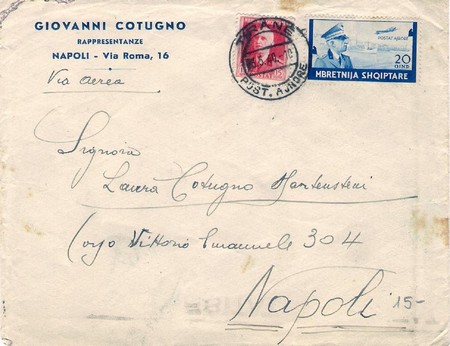 GIOVANNI COTUGNO
RAPPRESENTANZE
NAPOLI - Via Roma, 16
Via Aerea
TIRANE
POST. AJNORE
POSTAT AJRORE
20
QIND
MBRETNIJA SHQIPTARE
Signora
Laura Cotugno
Corso Vittorio Emanuele 304
Napoli
15-